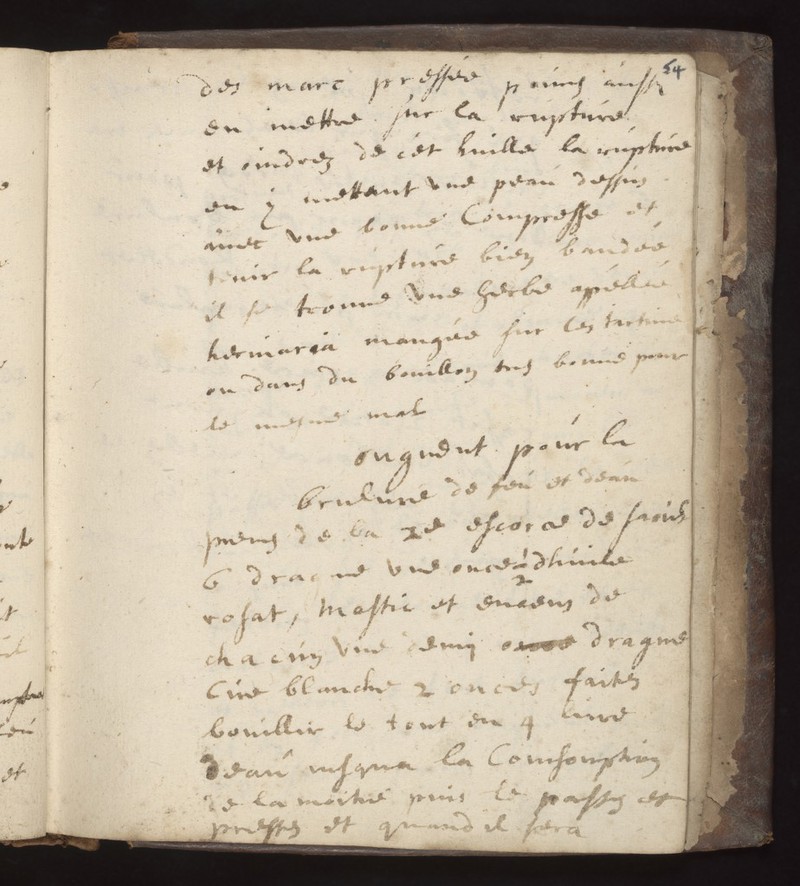 54
des marc pressée puis aussy
en mettre sur la rupture
et oindrez de cet huille la rupture
en y mettant vne peau dessus
auec vne bonne Compresse et
tenir la rupture bien bandée
il se trouue vne herbe appellée
herniaria mangée sur les tartine
ou dans du bouillon tres bonne pour
le mesme mal
onguent pour la
brulure de feu et deau
prens de la 2e escorce de
6 dragme vne once dhuile
rosat, Mastic et encens de
chacun vne demy dragme
Cire blanche 2 onces faites
bouillir le tout en 4 liure
deau iusqua la Consomption
de la moitié puis le passez et
pressez et quand il sera